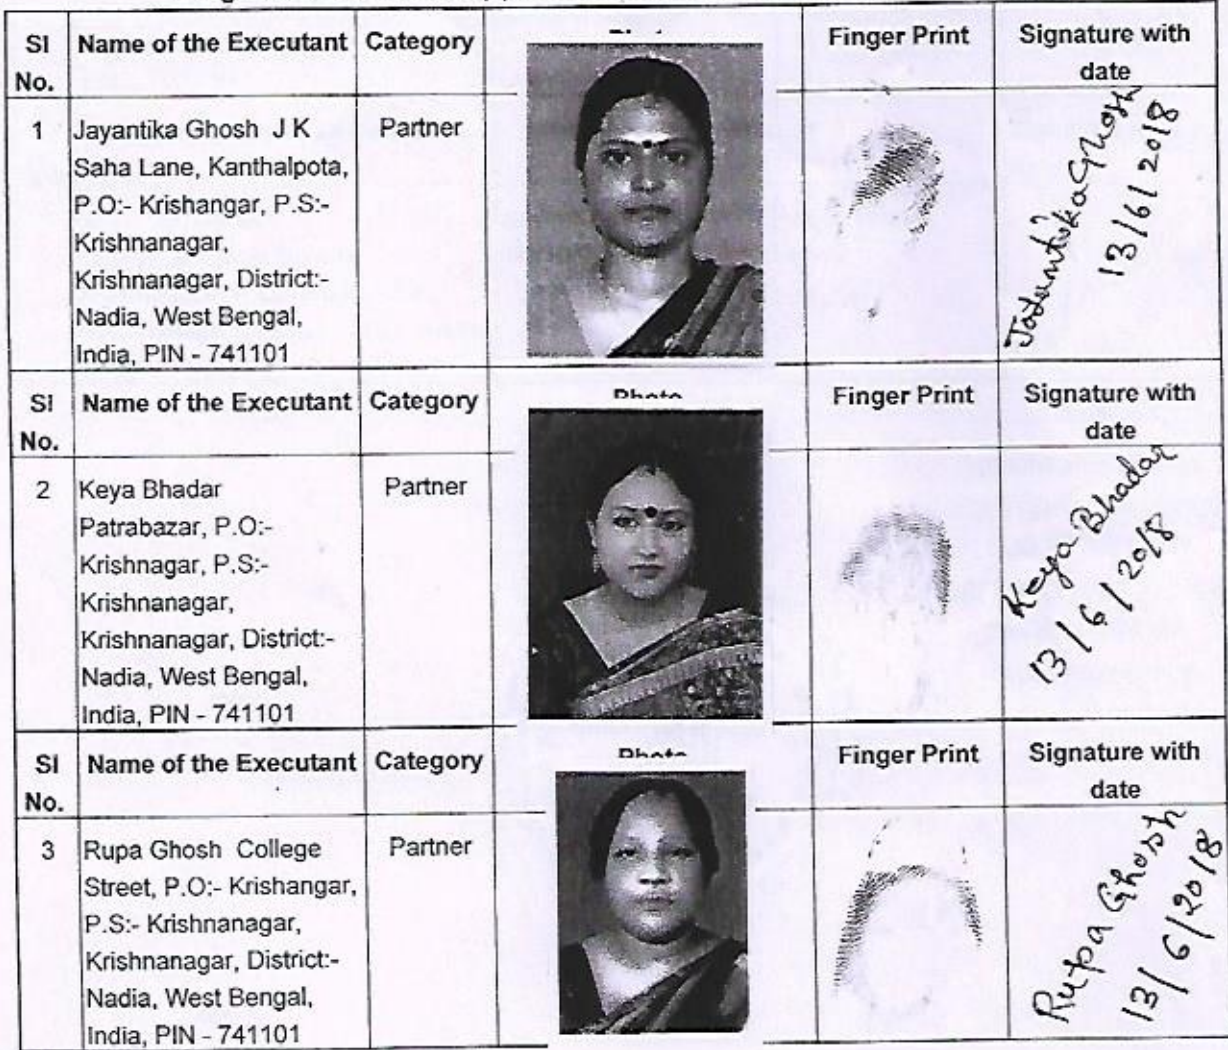 Sl No. Name of the Executant Category Finger Print Signature with date
1 Jayantika Ghosh J K Saha Lane, Kanthalpota, P.O:- Krishangar, P.S:- Krishnanagar, Krishnanagar, District:- Nadia, West Bengal, India, PIN - 741101
Partner
Jayantika Ghosh
13/6/2018
Sl No. Name of the Executant Category Photo Finger Print Signature with date
2 Keya Bhadar Patrabazar, P.O:- Krishnagar, P.S:- Krishnanagar, Krishnanagar, District:- Nadia, West Bengal, India, PIN - 741101
Partner
Keya Bhadar
13/6/2018
Sl No. Name of the Executant Category Photo Finger Print Signature with date
3 Rupa Ghosh College Street, P.O:- Krishangar, P.S:- Krishnanagar, Krishnanagar, District:- Nadia, West Bengal, India, PIN - 741101
Partner
Rupa Ghosh
13/6/2018